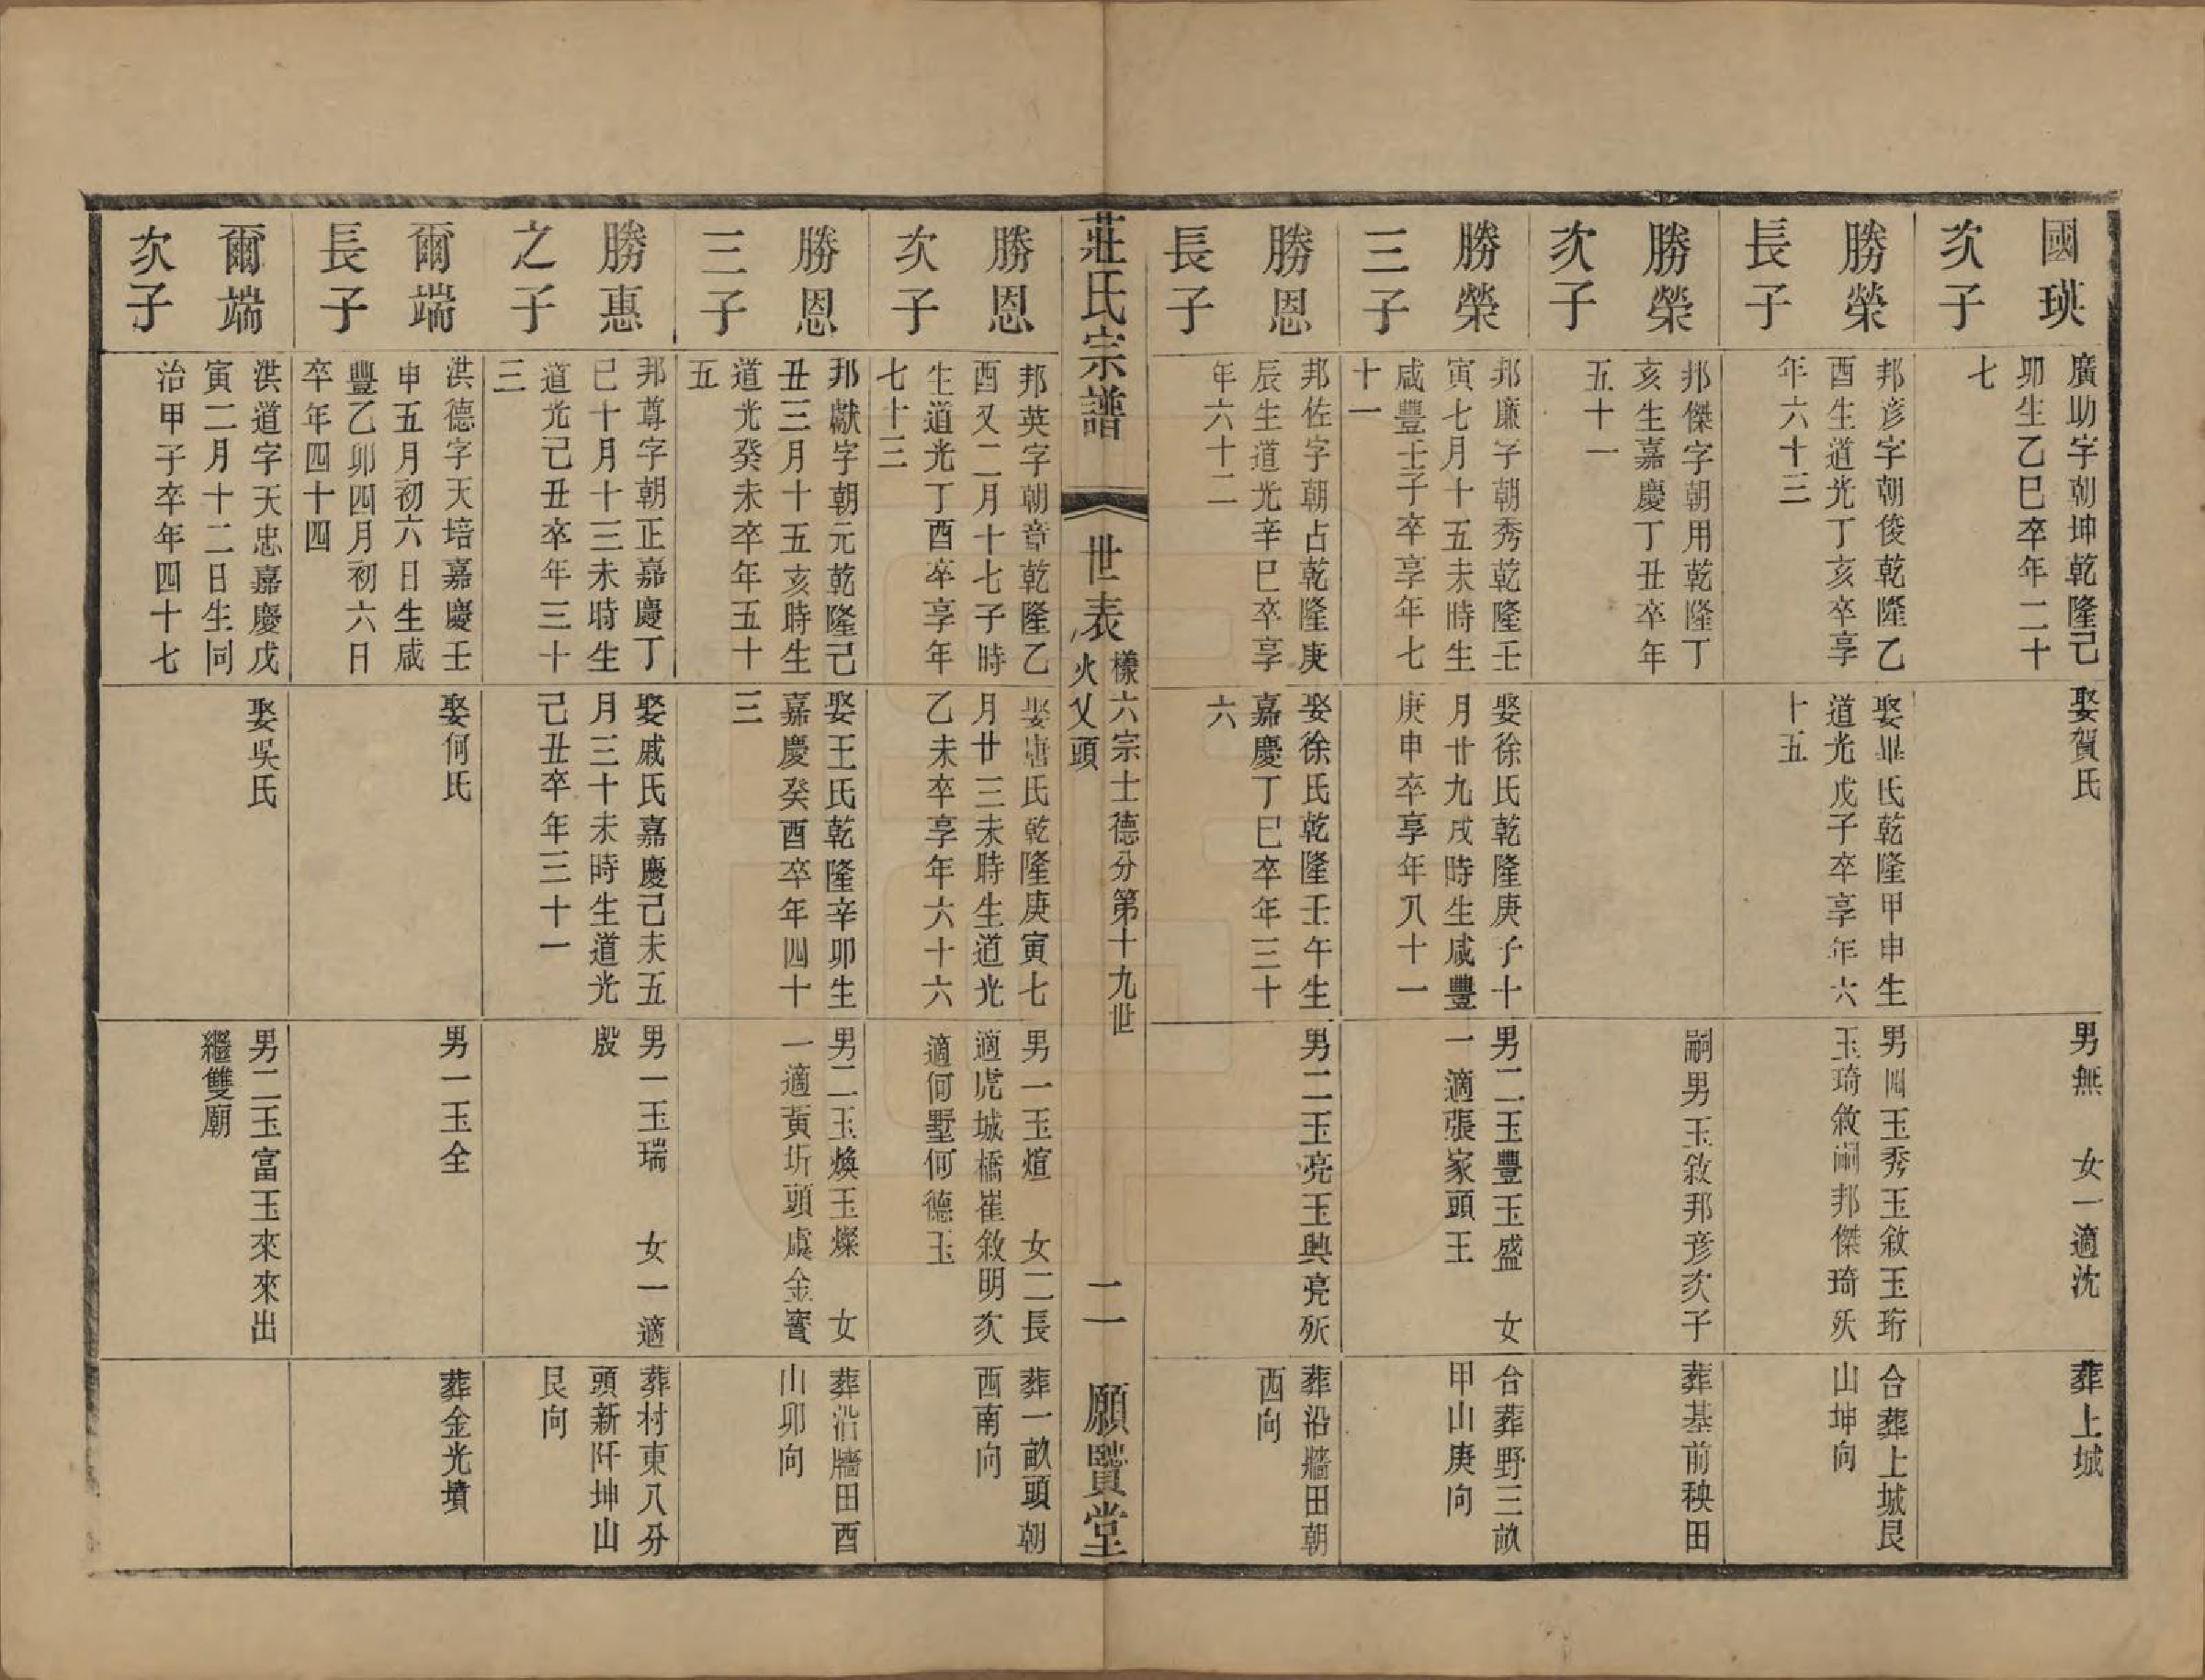 國瑛
次子
廣助字朝坤乾隆己
卯生乙巳卒年二十
七
娶賀氏
男無　女一適沈
葬上城
勝榮
長子
邦彥字朝俊乾隆乙
酉生道光丁亥卒享
年六十三
娶㞻氏乾隆甲申生
道光戊子卒享年六
十五
男四玉秀玉敘玉珩
玉琦敘嗣邦傑琦殀
合葬上城艮
山坤向
勝榮
次子
邦傑字朝用乾隆丁
亥生嘉慶丁丑卒年
五十一
嗣男玉敘邦彥次子
葬基前秧田
勝榮
三子
邦廉字朝秀乾隆壬
寅七月十五未時生
咸豐壬子卒享年七
十一
娶徐氏乾隆庚子十
月廿九戌時生咸豐
庚申卒享年八十一
男二玉豐玉盛　女
一適張家頭王
合葬野三畝
甲山庚向
勝恩
長子
邦佐字朝占乾隆庚
辰生道光辛巳卒享
年六十二
娶徐氏乾隆壬午生
嘉慶丁巳卒年三十
六
男二玉亮玉興亮殀
葬沿牆田朝
西向
莊氏宗譜
世表
樣六宗士德分第十九世
火乂頭
二
願賢堂
勝恩
次子
邦英字朝章乾隆乙
酉又二月十七子時
生道光丁酉卒享年
七十三
娶唐氏乾隆庚寅七
月廿三未時生道光
乙未卒享年六十六
男一玉煊　女二長
適虎城橋崔敘明次
適何墅何德玉
葬一畝頭朝
西南向
勝恩
三子
邦獻字朝元乾隆己
丑三月十五亥時生
道光癸未卒年五十
五
娶王氏乾隆辛卯生
嘉慶癸酉卒年四十
三
男二玉煥玉燦　女
一適黃圻頭虞金寶
葬沿牆田酉
山卯向
勝惠
之子
邦尊字朝正嘉慶丁
巳十月十三未時生
道光己丑卒年三十
三
娶戚氏嘉慶己未五
月三十未時生道光
己丑卒年三十一
男一玉瑞　女一適
殷
葬村東八分
頭新阡坤山
艮向
爾端
長子
洪德字天培嘉慶壬
申五月初六日生咸
豐乙卯四月初六日
卒年四十四
娶何氏
男一玉全
葬金光墳
爾端
次子
洪道字天忠嘉慶戊
寅二月十二日生同
治甲子卒年四十七
娶吳氏
男二玉富玉來來出
繼雙廟